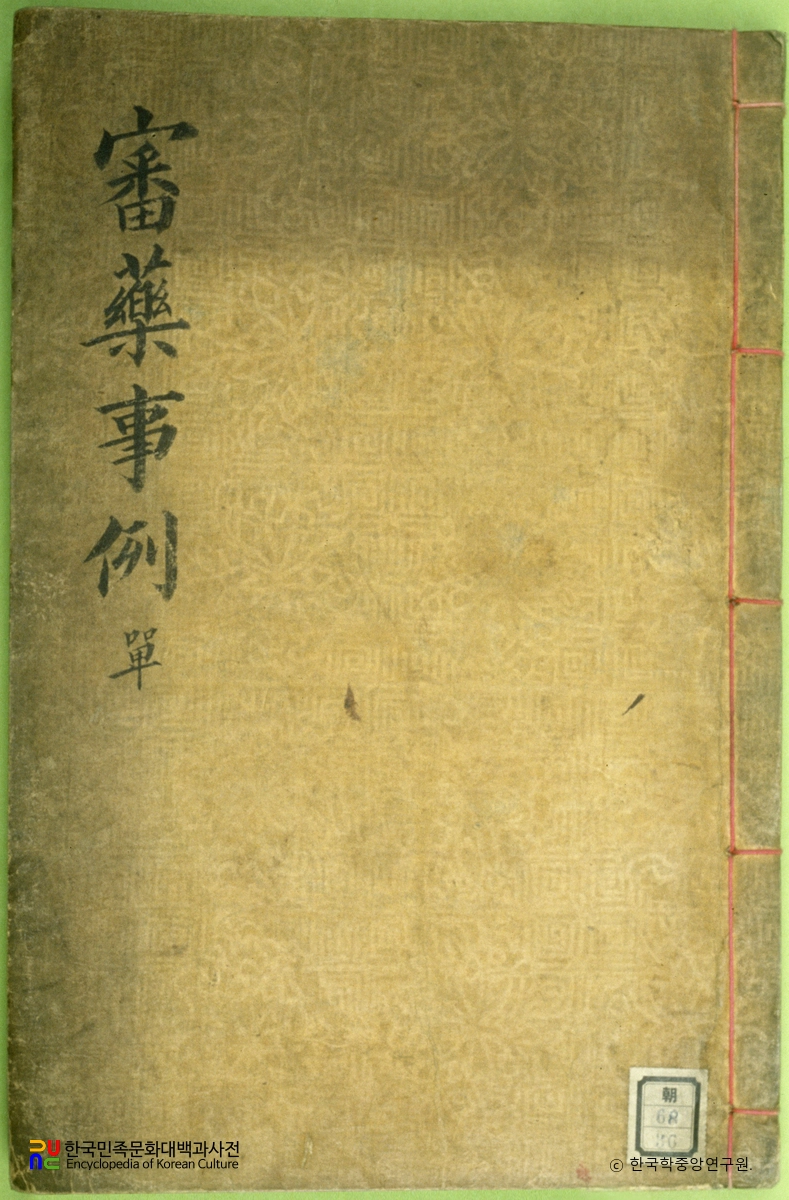 審藥事例 單
朝
68
36
한국민족문화대백과사전
Encyclopedia of Korean Culture
ⓒ 한국학중앙연구원.